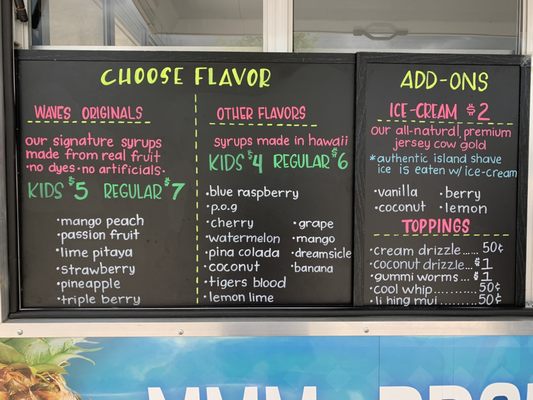 CHOOSE FLAVOR
WAVES ORIGINALS
our signature syrups
made from real fruit
•no dyes •no artificials•
KIDS $5 REGULAR $7
•mango peach
•passion fruit
•lime pitaya
•strawberry
•pineapple
•triple berry
OTHER FLAVORS
syrups made in hawaii
KIDS $4 REGULAR $6
•blue raspberry
•p.o.g
•cherry
•watermelon
•pina colada
•coconut
•tigers blood
•lemon lime
•grape
•mango
•dreamsicle
•banana
ADD-ONS
ICE-CREAM $2
our all-natural, premium
jersey cow gold
*authentic island shave
ice is eaten w/ ice-cream
•vanilla •berry
•coconut •lemon
TOPPINGS
•cream drizzle...... 50¢
•coconut drizzle... $1
•gummi worms... $1
•cool whip.......... 50¢
•li hing mui........ 50¢